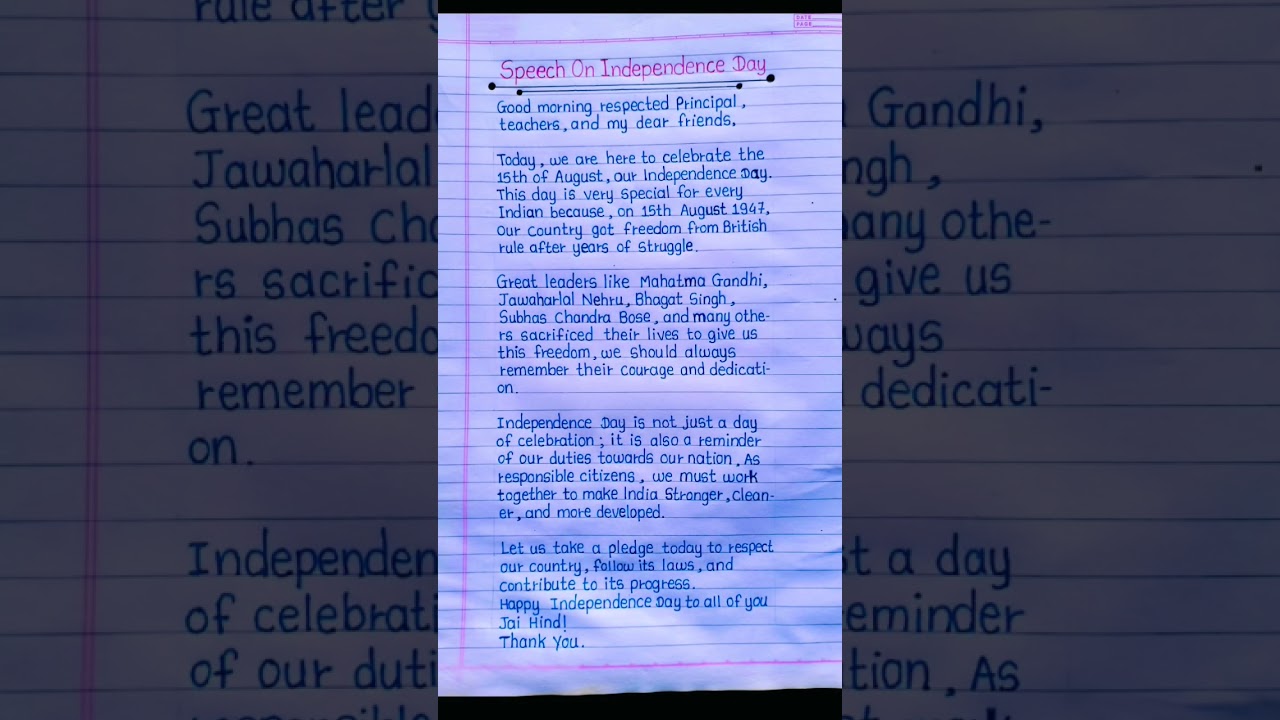 DATE
PAGE
Speech On Independence Day
Good morning respected Principal,
teachers, and my dear friends.
Today, we are here to celebrate the
15th of August, our Independence Day.
This day is very special for every
Indian because, on 15th August 1947,
our country got freedom from British
rule after years of struggle.
Great leaders like Mahatma Gandhi,
Jawaharlal Nehru, Bhagat Singh,
Subhas Chandra Bose, and many othe-
rs sacrificed their lives to give us
this freedom, we should always
remember their courage and dedicati-
on.
Independence Day is not just a day
of celebration; it is also a reminder
of our duties towards our nation. As
responsible citizens, we must work
together to make India Stronger, clean-
er, and more developed.
Let us take a pledge today to respect
our country, follow its laws, and
contribute to its progress.
Happy Independence Day to all of you
Jai Hind!
Thank You.